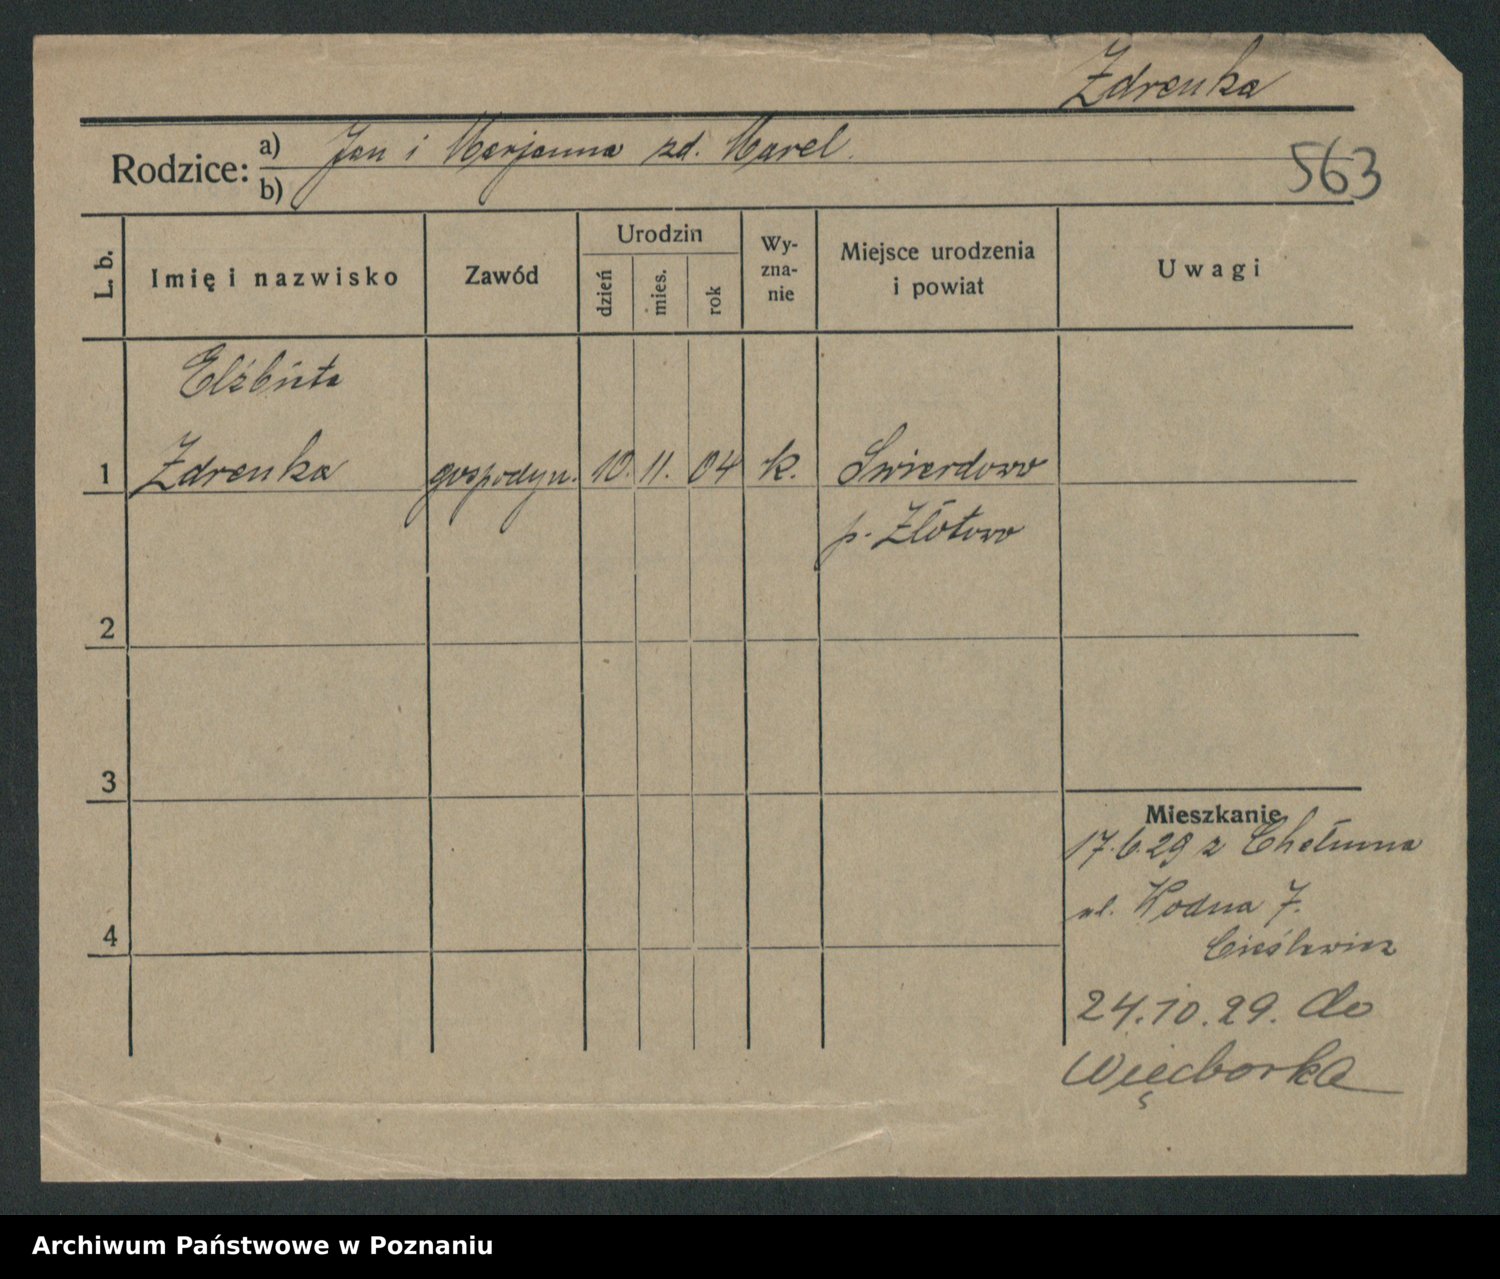 Zdrenka
Rodzice: a) Jan i Marjanna zd. Marel.
b)
563
L. b.
Imię i nazwisko
Zawód
Urodzin
dzień
mies.
rok
Wy-
zna-
nie
Miejsce urodzenia
i powiat
Uwagi
Elżbieta
1 Zdrenka gospodyn. 10. 11. 04 k. Swierdowo
p. Złotowo
2
3
Mieszkanie
17.6.29 z Chełmna
ul. Wodna 7.
Cieślewicz
4
24.10.29. do
Więcborka
Archiwum Państwowe w Poznaniu